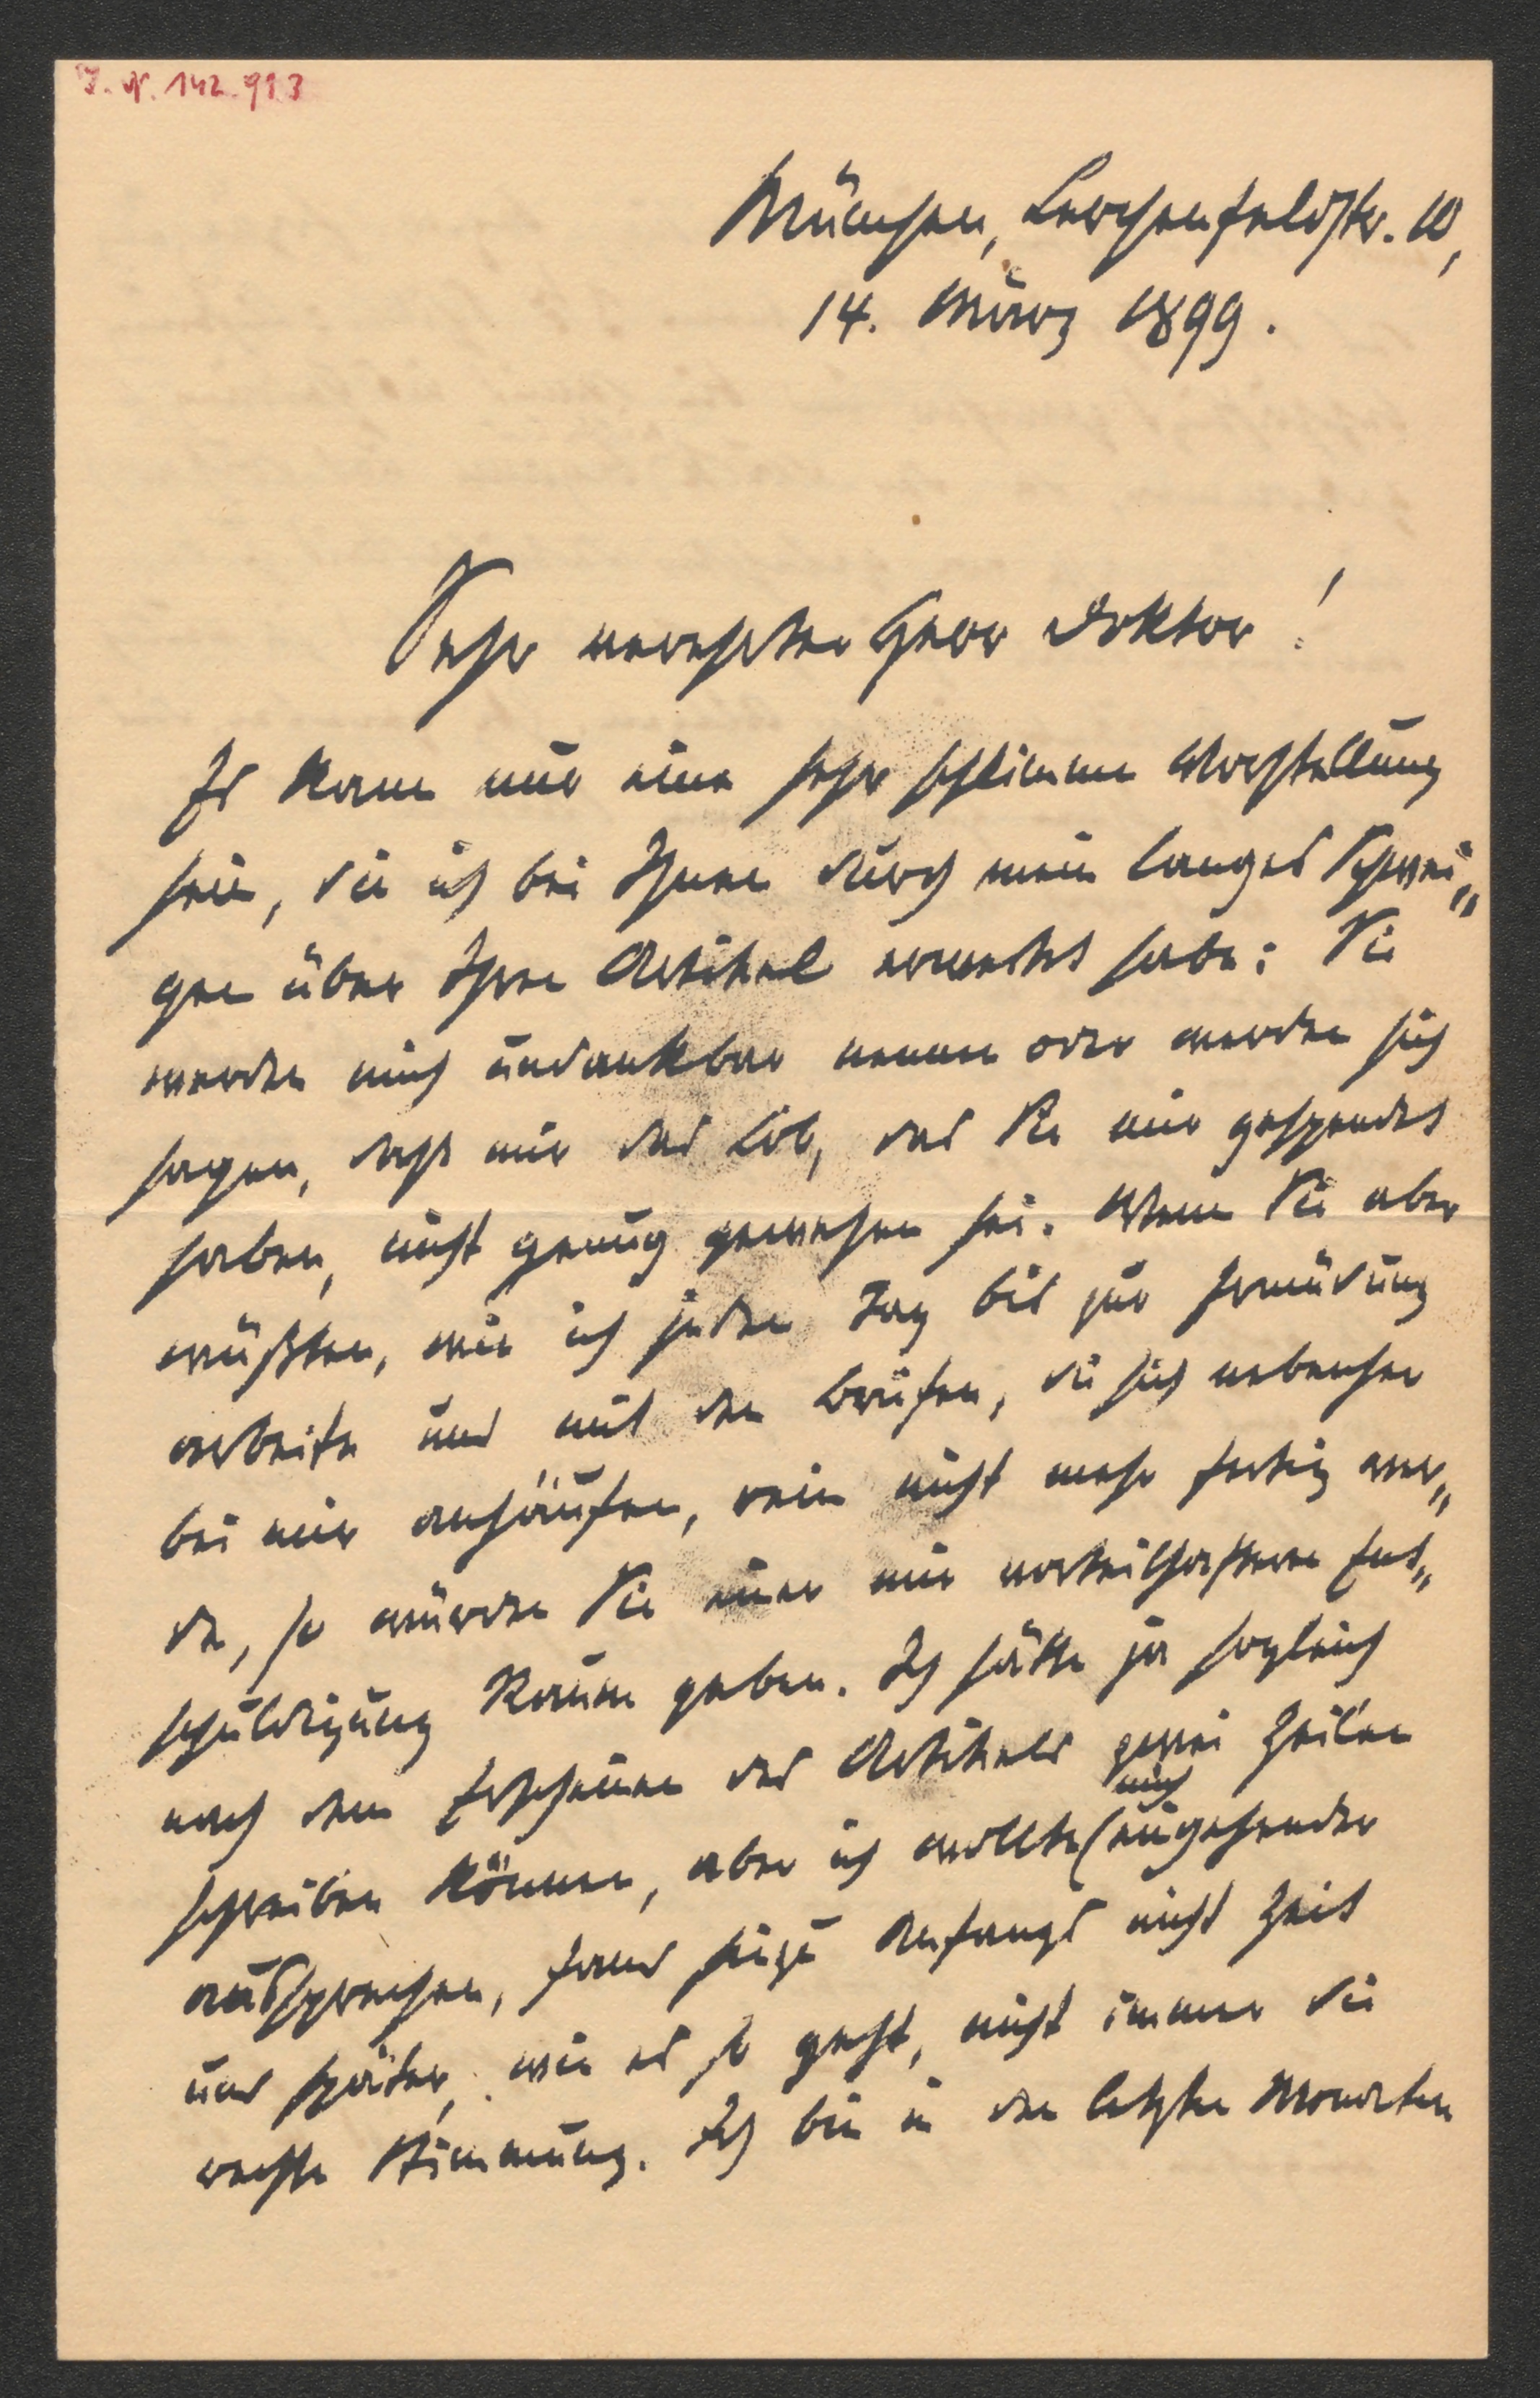 J. N. 142.913
München, Lerchenfeldstr. 10,
14. März 1899.
Sehr verehrter Herr Doktor!
Es kann nur eine sehr schlimme Vorstellung
sein, die ich bei Ihnen durch mein langes Schwei„
gen über Ihren Artikel erweckt habe: Sie
werden mich undankbar nennen oder werden sich
sagen, daß mir das Lob, das Sie mir gespendet
haben, nicht genug gewesen sei. Wenn Sie aber
wüßten, wie ich jeden Tag bis zur Ermüdung
arbeite und mit den Briefen, die sich nebenher
bei mir anhäufen, rein nicht mehr fertig wer„
de, so würden Sie einer mir vorteilhafteren Ent„
schuldigung Raum geben. Ich hätte ja sogleich
nach dem Erscheinen des Artikels zwei Zeilen
schreiben können, aber ich wollte (mich) eingehender
aussprechen, fand hiezu Anfangs nicht Zeit
und später, wie es so geht, nicht immer die
rechte Stimmung. Ich bin in den letzten Monaten